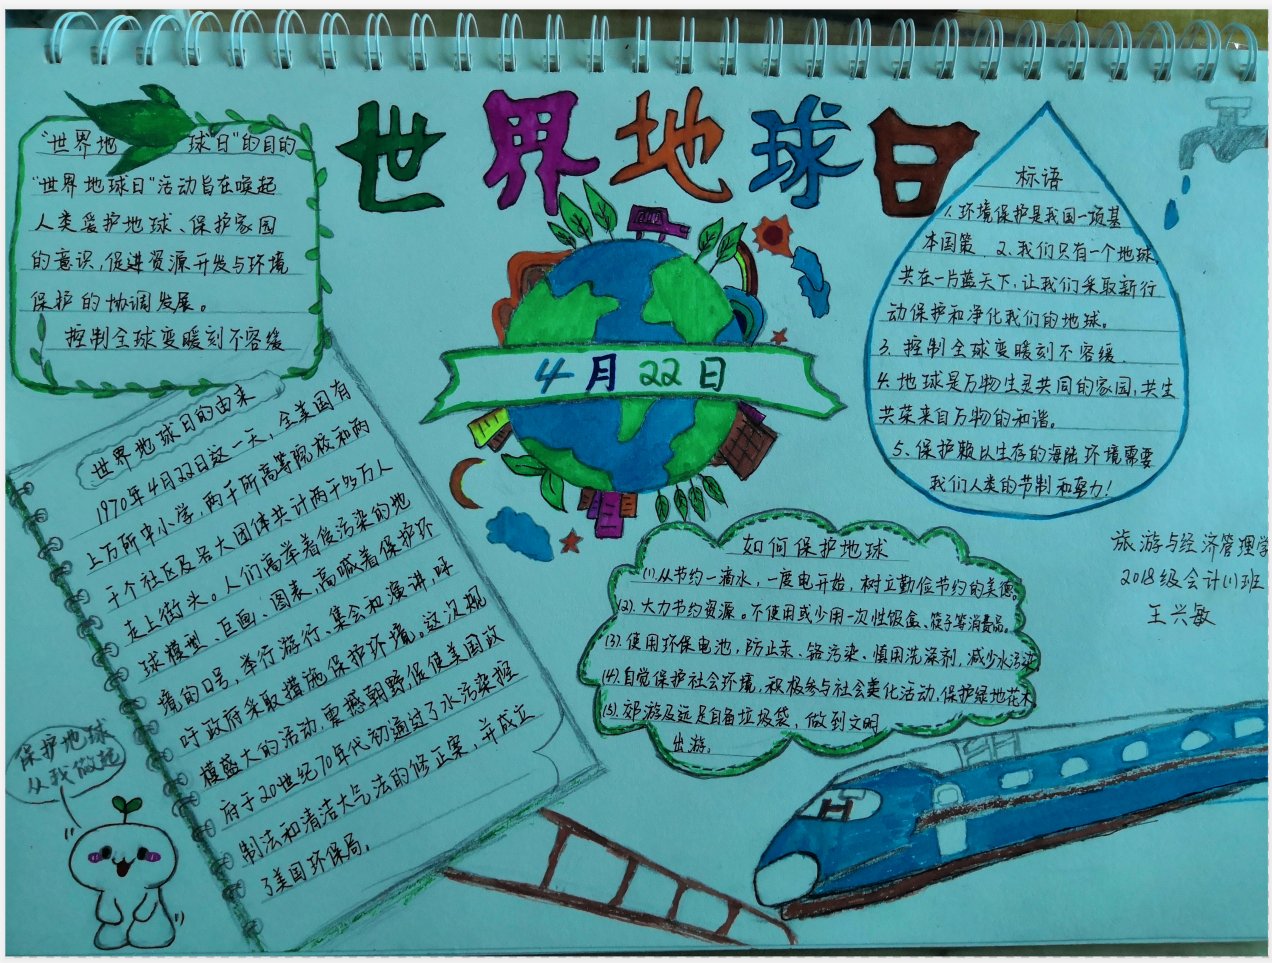 世界地球日
4月22日
"世界地球日"的目的
"世界地球日"活动旨在唤起
人类爱护地球、保护家园
的意识,促进资源开发与环境
保护的协调发展。
控制全球变暖刻不容缓
标语
1.环境保护是我国一项基
本国策. 2.我们只有一个地球
共在一片蓝天下,让我们采取新行
动保护和净化我们的地球。
3. 控制全球变暖刻不容缓.
4.地球是万物生灵共同的家园,共生
共荣来自万物的和谐。
5、保护赖以生存的海陆环境需要
我们人类的节制和努力!
世界地球日的由来
1970年4月22日这一天,全美国有
上万所中小学,两千所高等院校和两
千个社区及各大团体共计两千多万人
走上街头。人们高举着侵污染的地
球模型、巨画、图表,高喊着保护环
境的口号,举行游行、集会和演讲,呼
吁政府采取措施保护环境。这次规
模盛大的活动,震撼朝野,促使美国政
府于20世纪70年代初通过了水污染控
制法和清洁大气法的修正案,并成立
了美国环保局.
如何保护地球
(1).从节约一滴水,一度电开始,树立勤俭节约的美德。
(2).大力节约资源。不使用或少用一次性饭盒、筷子等消费品。
(3).使用环保电池,防止汞、铬污染、慎用洗涤剂,减少水污染
(4).自觉保护社会环境,积极参与社会美化活动,保护绿地花木
(5).郊游及远足自备垃圾袋,做到文明
出游.
旅游与经济管理学
2018级会计(1)班
王兴敏
保护地球
从我做起